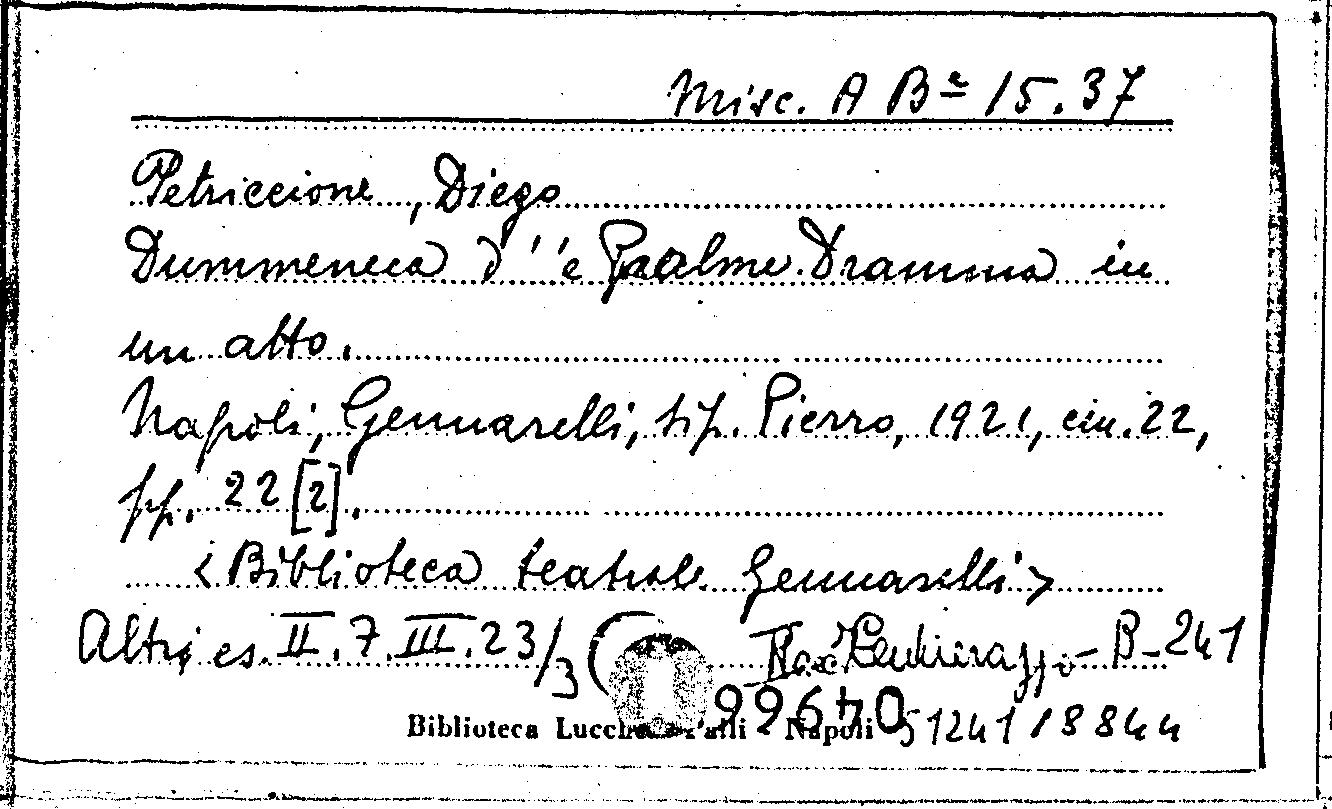 Misc. A Bᵃ 15.37
Petriccione, Diego
Dummeneca d' 'e Paalme. Dramma in
un atto.
Napoli, Gennarelli, tip. Pierro, 1921, cm. 22,
pp. 22 [2].
<Biblioteca teatrale Gennarelli>
Altri es. II. 7. III. 23/3 ( - B - 241
Biblioteca Napoli
99640 51241/8844